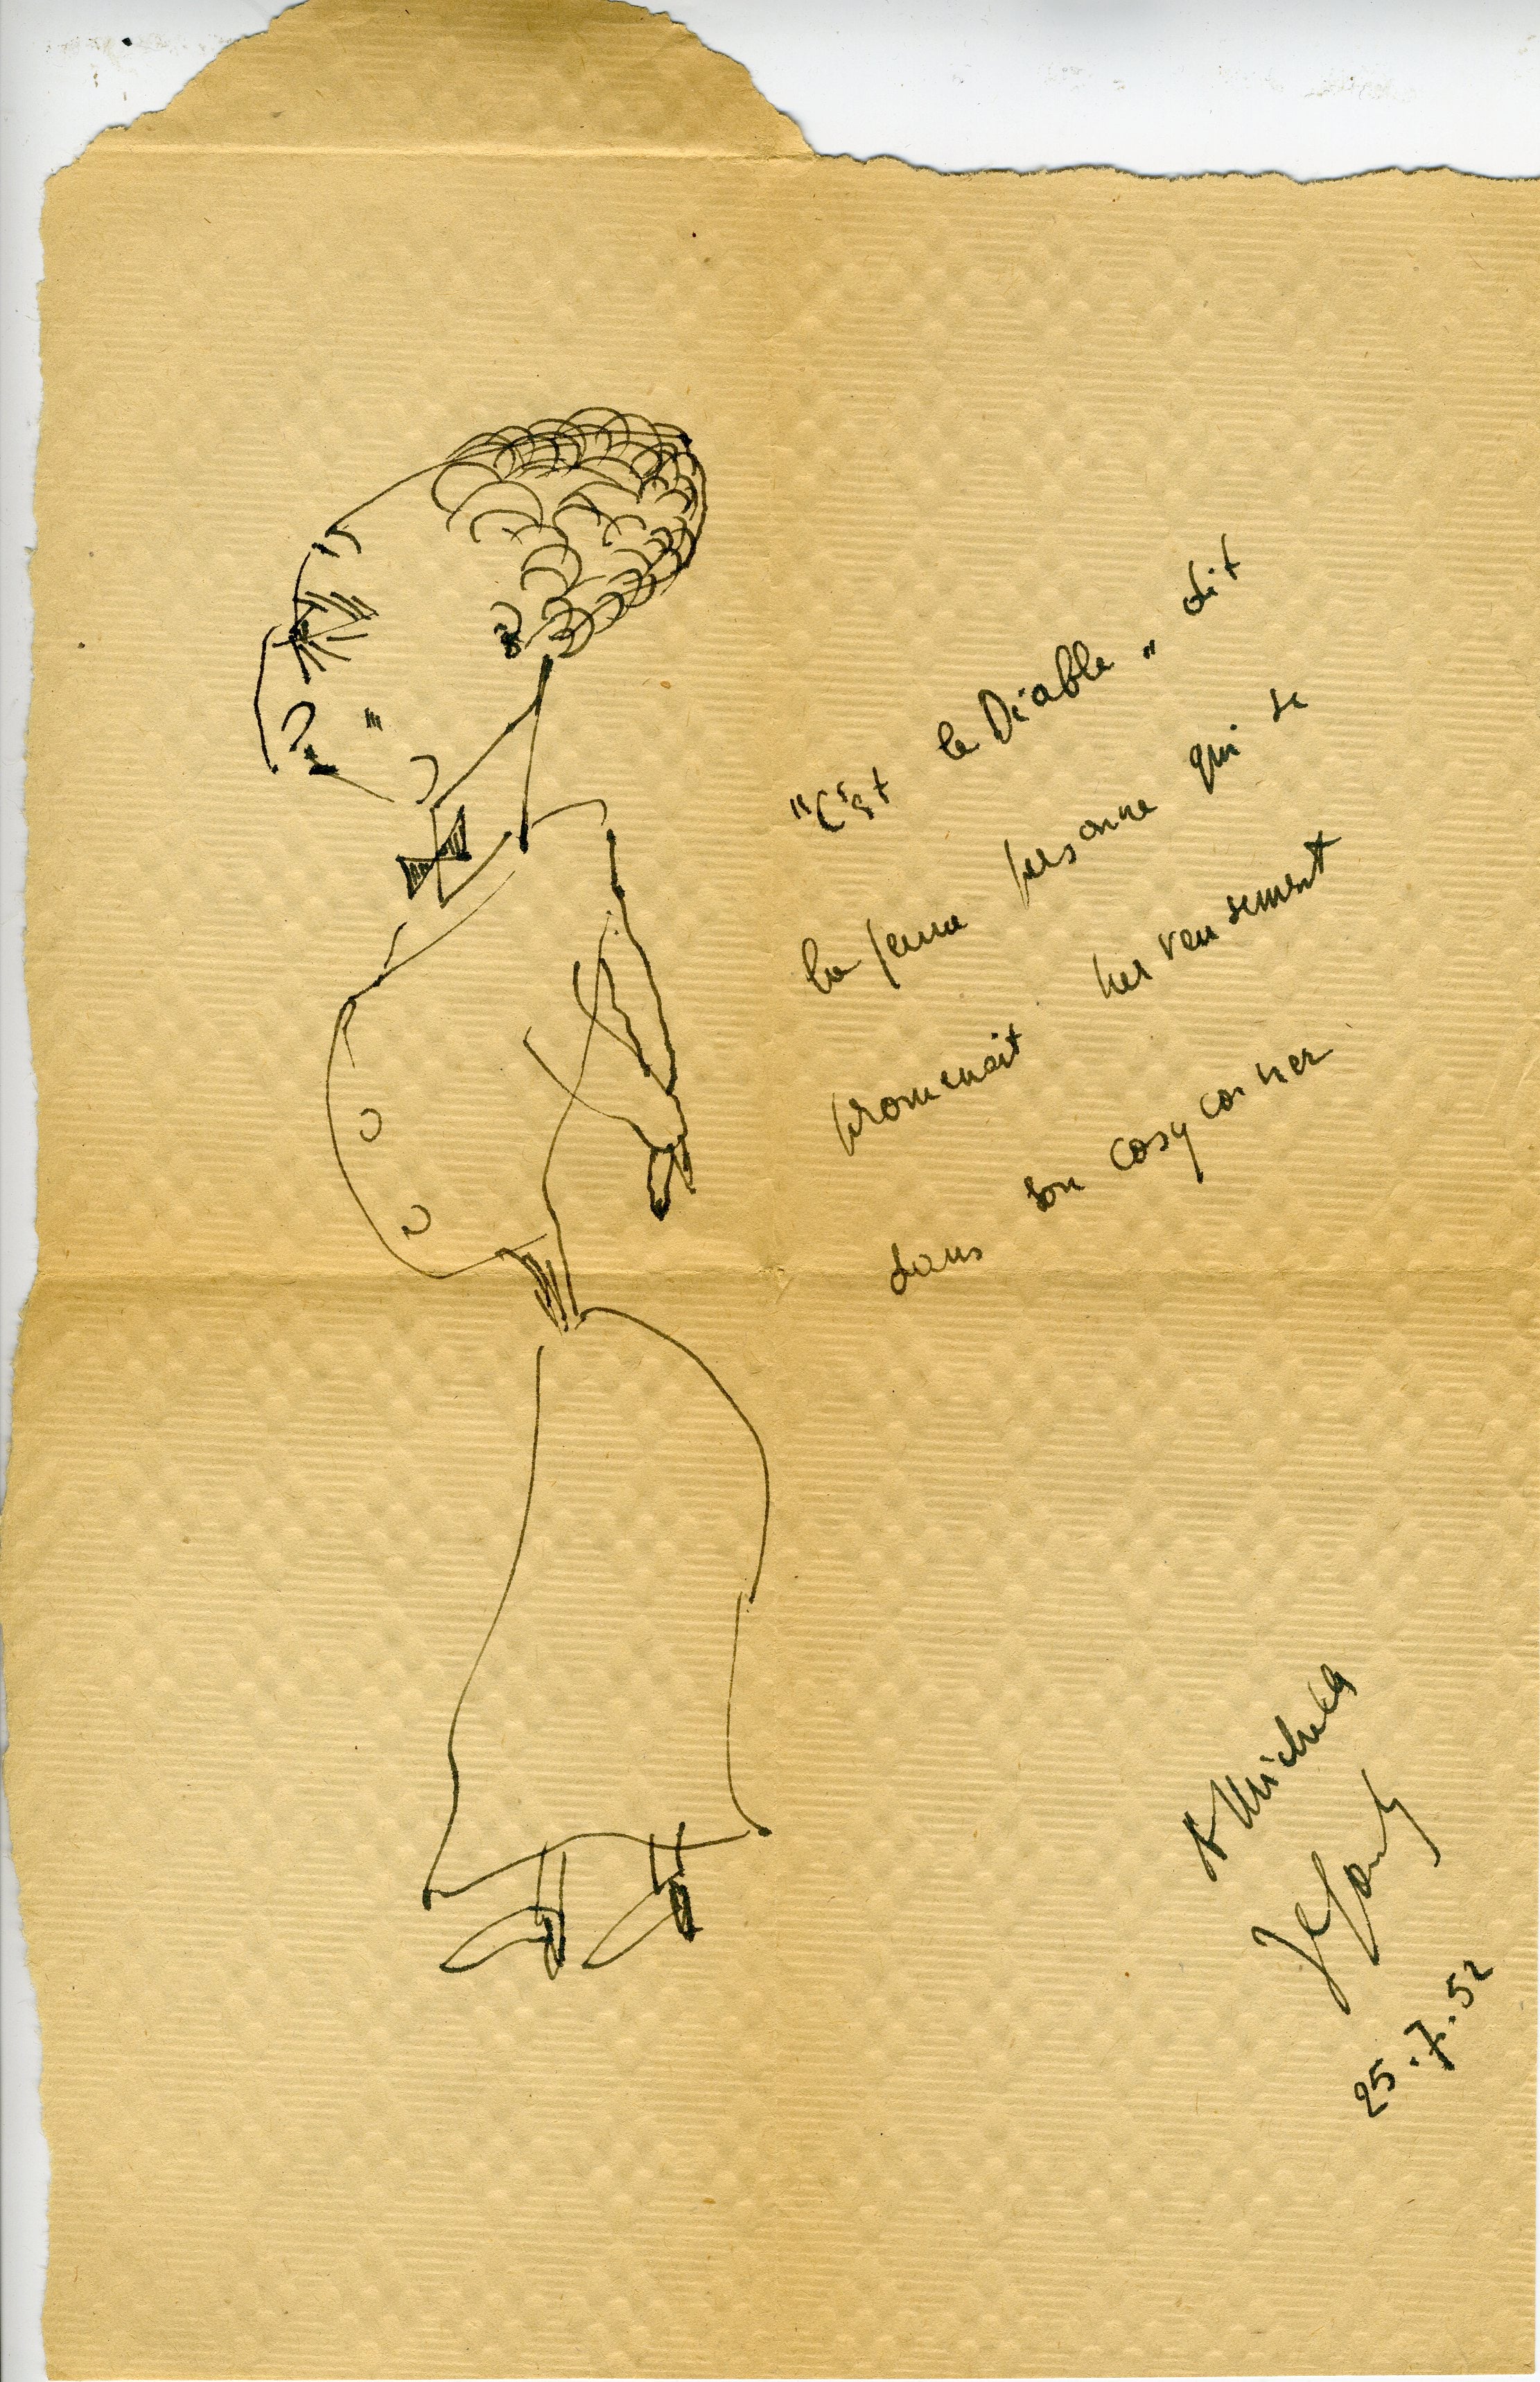 "C'est le Diable" dit
la jeune personne qui se
promenait nerveusement
dans son cosy corner
A Michele
25.7.52